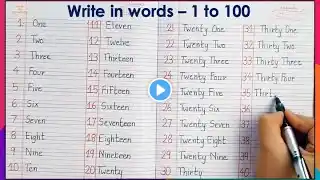 Write in words – 1 to 100
1 One 11 Eleven 21 Twenty One 31 Thirty One
2 Two 12 Twelve 22 Twenty Two 32 Thirty Two
3 Three 13 Thirteen 23 Twenty Three 33 Thirty Three
4 Four 14 Fourteen 24 Twenty Four 34 Thirty Four
5 Five 15 Fifteen 25 Twenty Five 35 Thirt
6 Six 16 Sixteen 26 Twenty Six 36
7 Seven 17 Seventeen 27 Twenty Seven 37
8 Eight 18 Eighteen 28 Twenty Eight 38
9 Nine 19 Nineteen 29 Twenty Nine 39
10 Ten 20 Twenty 30 Thirty 40